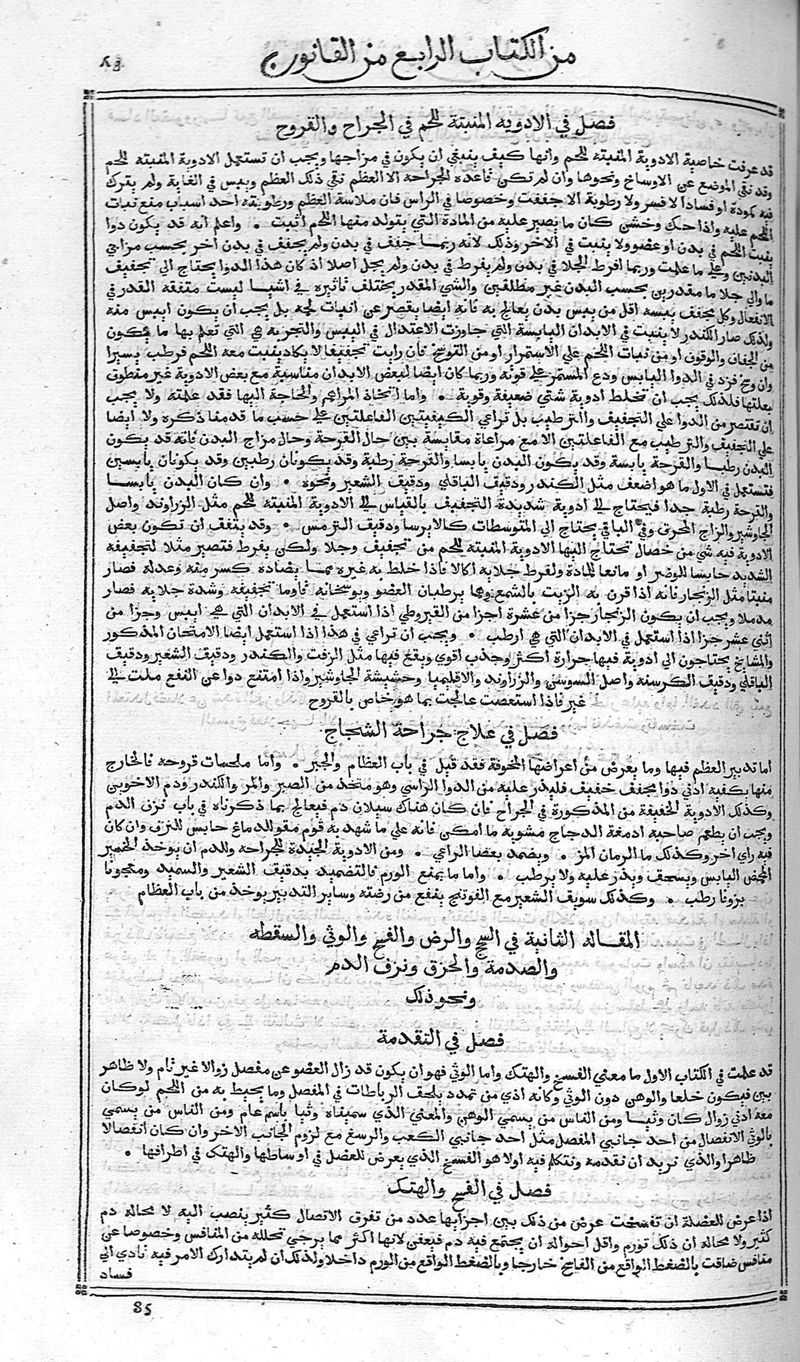 من الكتاب الرابع من القانون
فصل في الادويه المنبتة للحم في الجراح والقروح
قد عرفت خاصية الادوية المنبته للحم وانها كيف ينبغي ان يكون في مزاجها ويجب ان تستعمل الادوية المنبته للحم
وقد نقي الموضع عن الاوساخ ونحوها وان لم تكن قاعدة الجراحة الا العظم نقي ذلك العظم ويبس في الغاية ولم يترك
فيه كمودة او فسادا لا قسر ولا رطوبة الا جففت وخصوصا في الراس فان ملاسة العظم ورطوبته احد اسباب منع نبات
اللحم عليه واذا حك وخشن كان ما يصير عليه من المادة التي يتولد منها اللحم اثبت ٠ واعلم انه قد يكون دوا
ينبت اللحم في بدن او عضو ولا ينبت في الاخر وذلك لانه ربما جفف في بدن ولم يجفف في بدن اخر بحسب مزاجي
البدنين وعلي ما علمت وربما افرط الجلا في بدن ولم يفرط في بدن ولم يجل اصلا اذ كان هذا الدوا يحتاج الي تجفيف
ما والي جلا ما مقدرين بحسب البدن غير مطلقين والشي المقدر يختلف تاثيره في اشيا ليست متفقه القدر في
الانفعال وكل مجفف يبسه اقل من يبس بدن يعالج به فانه ايضا يقصر عن انبات لحمه بل يجب ان يكون ايبس منه
ولذلك صار الكندر لا ينبت في الابدان اليابسة التي جاوزت الاعتدال في اليبس والتجربه هي التي تعلم بها ما يكون
من الجفاف والوقوف او من نبات اللحم علي الاستمرار او من التوسخ فان رايت تجفيفا لا يكاد ينبت معه اللحم فرطب يسيرا
وان وسخ فزد في الدوا اليابس ودع المستمر علي قوته وربما كان ايضا لبعض الابدان مناسبة مع بعض الادوية غير منطوق
بعلتها فلذلك يجب ان تخلط ادوية شتي ضعيفة وقوية ٠ واما اتخاذ المراهم والحاجة اليها فقد علمته ولا يجب
ان تقتصر من الدوا علي التجفيف والترطيب بل تراعي الكيفيتين الفاعلتين علي حسب ما قدمنا ذكره ولا ايضا
علي التجفيف والترطيب مع الفاعلتين الا مع مراعاة مقايسة بين حال القرحة وحال مزاج البدن فانه قد يكون
البدن رطبا والقرحة يابسة وقد يكون البدن يابسا والقرحة رطبة وقد يكونان رطبين وقد يكونان يابسين
فتستعمل في الاول ما هو اضعف مثل الكندر ودقيق الباقلي ودقيق الشعير ونحوه ٠ وان كان البدن يابسا
والقرحة رطبة جدا فيحتاج الي ادوية شديدة التجفيف بالقياس الي الادوية المنبته للحم مثل الزراوند واصل
الجاوشير والزاج المحرق وفي الباقي يحتاج الي المتوسطات كالايرسا ودقيق الترمس ٠ وقد يتفق ان تكون بعض
الادوية فيه شي من خصال تحتاج اليها الادوية المنبته للحم من تجفيف وجلا ولكن يفرط فتصير مثلا لتجفيفه
الشديد حابسا للوضر او مانعا للمادة ولفرط جلايه اكالا فاذا خلط به غيره مما يضاده كسر منه وعدله فصار
منبتا مثل الزنجار فانه اذا قرن به الزيت بالشمع وهما يرطبان العضو ويوسخانه قاوما تجفيفه وشدة جلايه فصار
مدملا ويجب ان يكون الزنجار جزا من عشرة اجزا من القيروطي اذا استعمل في الابدان التي هي ايبس وجزا من
اثني عشر جزا اذا استعمل في الابدان التي هي ارطب ٠ ويجب ان تراعي في هذا اذا استعمل ايضا الامتحان المذكور
والمشايخ يحتاجون الي ادوية فيها حرارة اكثر وجذب اقوي ويقع فيها مثل الزفت والكندر ودقيق الشعير ودقيق
الباقلي ودقيق الكرسنه واصل السوسن والزراوند والاقليميا وحشيشة الجاوشير واذا امتنع دوا عن النفع ملت الي
غير فاذا استعصت عالجت بما هو خاص بالقروح
فصل في علاج جراحة الشجاج
اما تدبير العظم فيها وما يعرض من اعراضها المخوفة فقد قيل في باب العظام والجبر ٠ واما ملحمات قروحه فالخارج
منها يكفيه ادني دوا مجفف خفيف فليذر عليه من الدوا الراسي وهو متخذ من الصبر والمر والكندر ودم الاخوين
وكذلك الادوية الخفيفة من المذكورة في الجراح فان كان هناك سيلان دم فيعالج بما ذكرناه في باب نزف الدم
ويجب ان يطعم صاحبه ادمغة الدجاج مشوية ما امكن فانه علي ما شهد به قوم مقو للدماغ حابس للنزف وان كان
فيه راي اخر وكذلك ما الرمان المز ٠ ويضمد بعصا الراعي ٠ ومن الادوية الجيدة للجراحه والدم ان يوخذ الخمير
المحض اليابس ويسحق ويذر عليه ولا يرطب ٠ واما ما يمنع الورم فالتضميد بدقيق الشعير والسميد ومعجونا
بزوفا رطب ٠ وكذلك سويف الشعير مع الفوتنج ينفع من رضته وساير التدبير يوخذ من باب العظام
المقاله الثانية في السحج والرض والفسخ والوثي والسقطه
والصدمة والخرق ونزف الدم
ونحو ذلك
فصل في التقدمة
قد علمت في الكتاب الاول ما معني الفسخ والهتك واما الوثي فهو ان يكون قد زال العضو عن مفصل زوالا غير تام ولا ظاهر
بين فيكون خلعا والوهن دون الوثي وكانه اذي من تمدد يلحف الرباطات في المفصل وما يحيط به من اللحم لو كان
معه ادني زوال كان وثيا ومن الناس من يسمي الوهن والمعني الذي سميناه وثيا باسم عام ومن الناس من يسمي
بالوثي الانفصال من احد جانبي المفصل مثل احد جانبي الكعب والرسغ مع لزوم الجانب الاخر وان كان انفصالا
ظاهرا والذي نريد ان نقدمه ونتكلم فيه اولا هو الفسخ الذي يعرض للعضل في اوساطها والهتك في اطرافها ٠
فصل في الفسخ والهتك
اذا عرض للعضلة ان تفسخت عرض من ذلك بين اجزايها عدد من تفرق الاتصال كثير ينصب اليه لا محاله دم
كثير ولا محاله ان ذلك تورم واقل احواله ان يجتمع فيه دم فيعفن لانها اكثر مما يرجي تحلله من المنافس وخصوصا عن
منافس ضاقت بالضغط الواقع من الفاسخ خارجا وبالضغط الواقع من الورم داخلا ولذلك ان لم يتدارك الامر فيه تادي الي
فساد
85